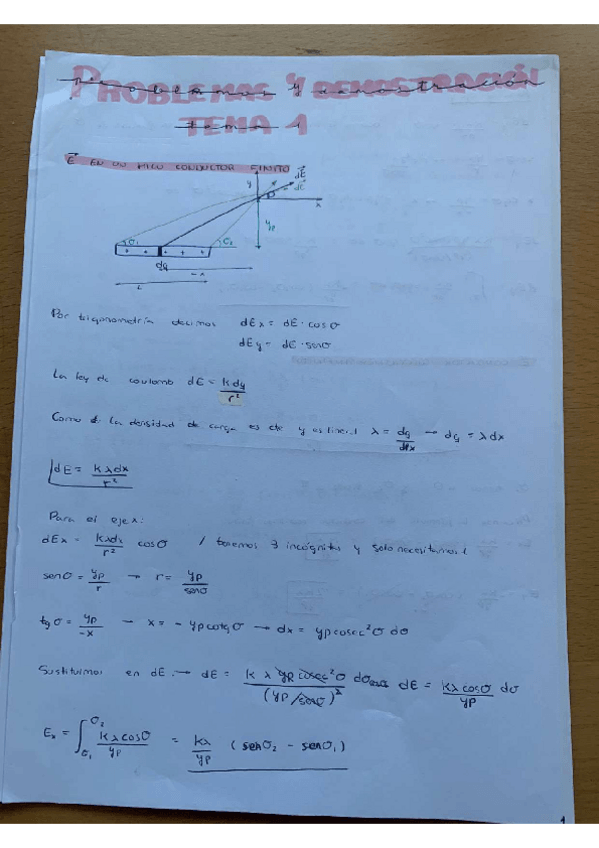 PROBLEMAS Y DEMOSTRACIÓN
TEMA 1
E⃗ EN UN HILO CONDUCTOR FINITO
dE⃗
dE
y
P
x
yp
σ1
σ2
dq
-x
L
Por trigonometría decimos dEx = dE · cosσ
dEy = dE · senσ
La ley de coulomb dE = kdq/r²
Como la densidad de carga es cte y es lineal λ = dq/dx → dq = λdx
dE = kλdx/r²
Para el eje x:
dEx = kλdx/r² cosσ / tenemos 3 incógnitas y solo necesitamos 1
senσ = yp/r → r = yp/senσ
tgσ = yp/-x → x = - yp cotgσ → dx = yp cosec²σ dσ
Sustituimos en dE → dE = kλ yp cosec²σ dσ cosσ/(yp/senσ)² dE = kλ cosσ/yp dσ
Ex = ∫σ1σ2 kλcosσ/yp = kλ/yp (senσ2 - senσ1)
1